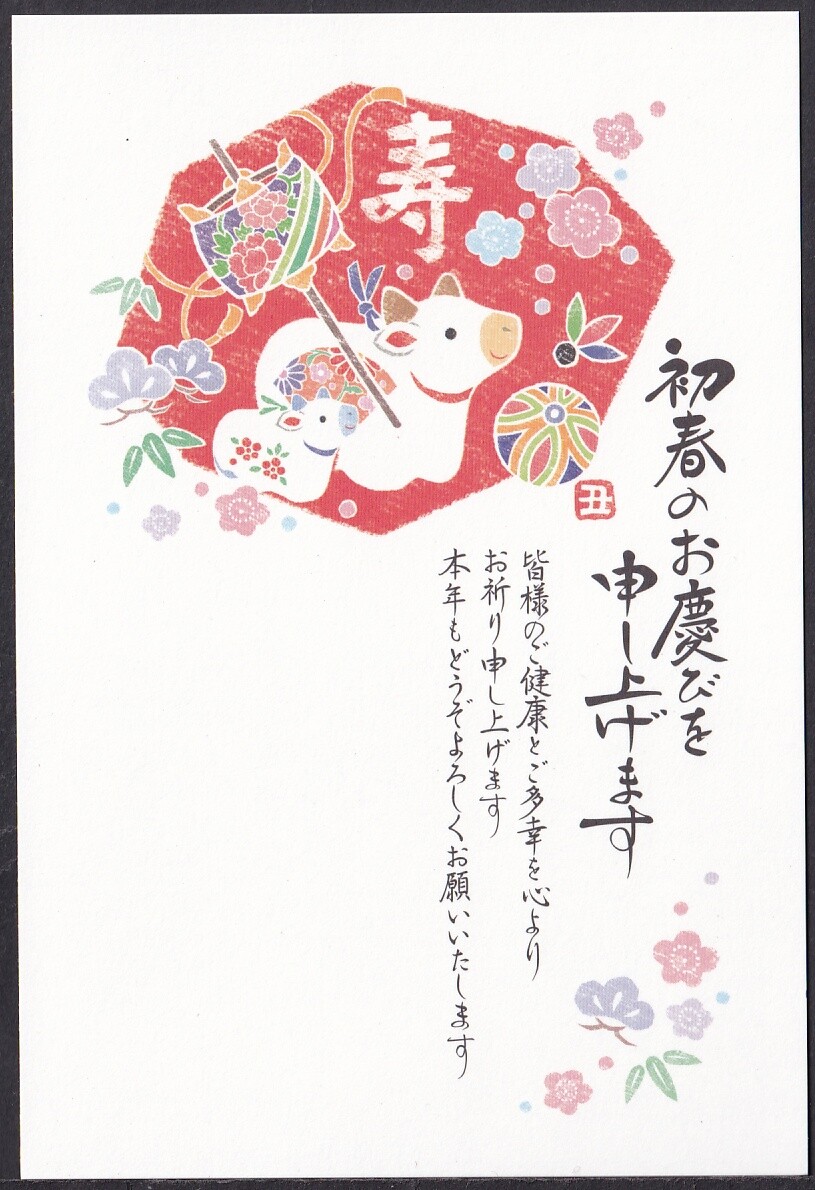 寿
丑
初春のお慶びを
申し上げます
皆様のご健康とご多幸を心より
お祈り申し上げます
本年もどうぞよろしくお願いいたします